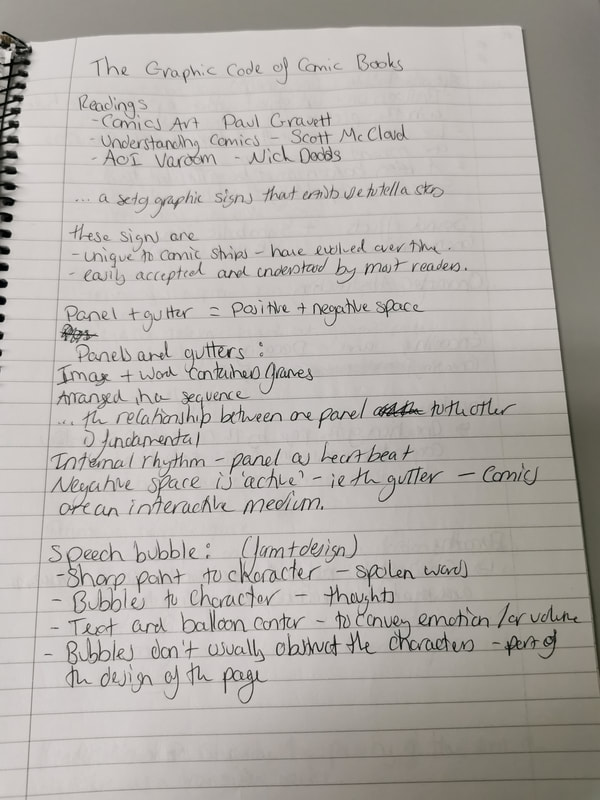 The Graphic Code of Comic Books
Readings
- Comics Art Paul Gravett
- Understanding Comics - Scott McCloud
- AOI Varoom - Nick Dodds
... a set of graphic signs that artists use to tell a story
these signs are
- unique to comic strips - have evolved over time.
- easily accepted and understood by most readers.
Panel + gutter = Positive + negative space
Panels and gutters :
Image + word contained frames
Arranged in a sequence
... the relationship between one panel to the other
is fundamental
Internal rhythm - panel as heartbeat
Negative space is 'active' - ie the gutter - Comics
are an interactive medium.
Speech bubble : design)
- Sharp point to character - spoken words
- Bubbles to character - thoughts
- Text and balloon contor - to convey emotion /or volume
- Bubbles don't usually obstruct the characters - part of
the design of the page